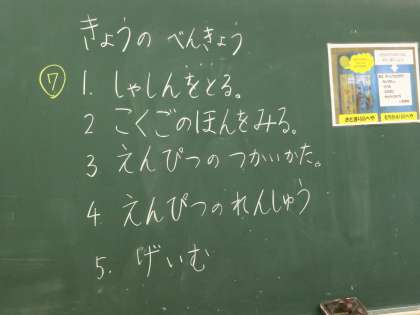 きょうの べんきょう
⑦ 1. しゃしんをとる。
2 こくごのほんをみる。
3 えんぴつのつかいかた。
4 えんぴつのれんしゅう
5. げいむ